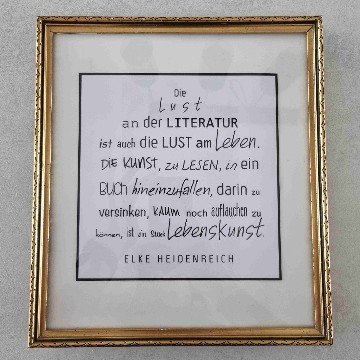 Die
Lust
an der LITERATUR
ist auch die LUST am Leben.
DIE KUNST, zu LESEN, in ein
BUCH hineinzufallen, darin zu
versinken, KAUM noch auftauchen zu
können, ist ein Stück Lebenskunst.
ELKE HEIDENREICH